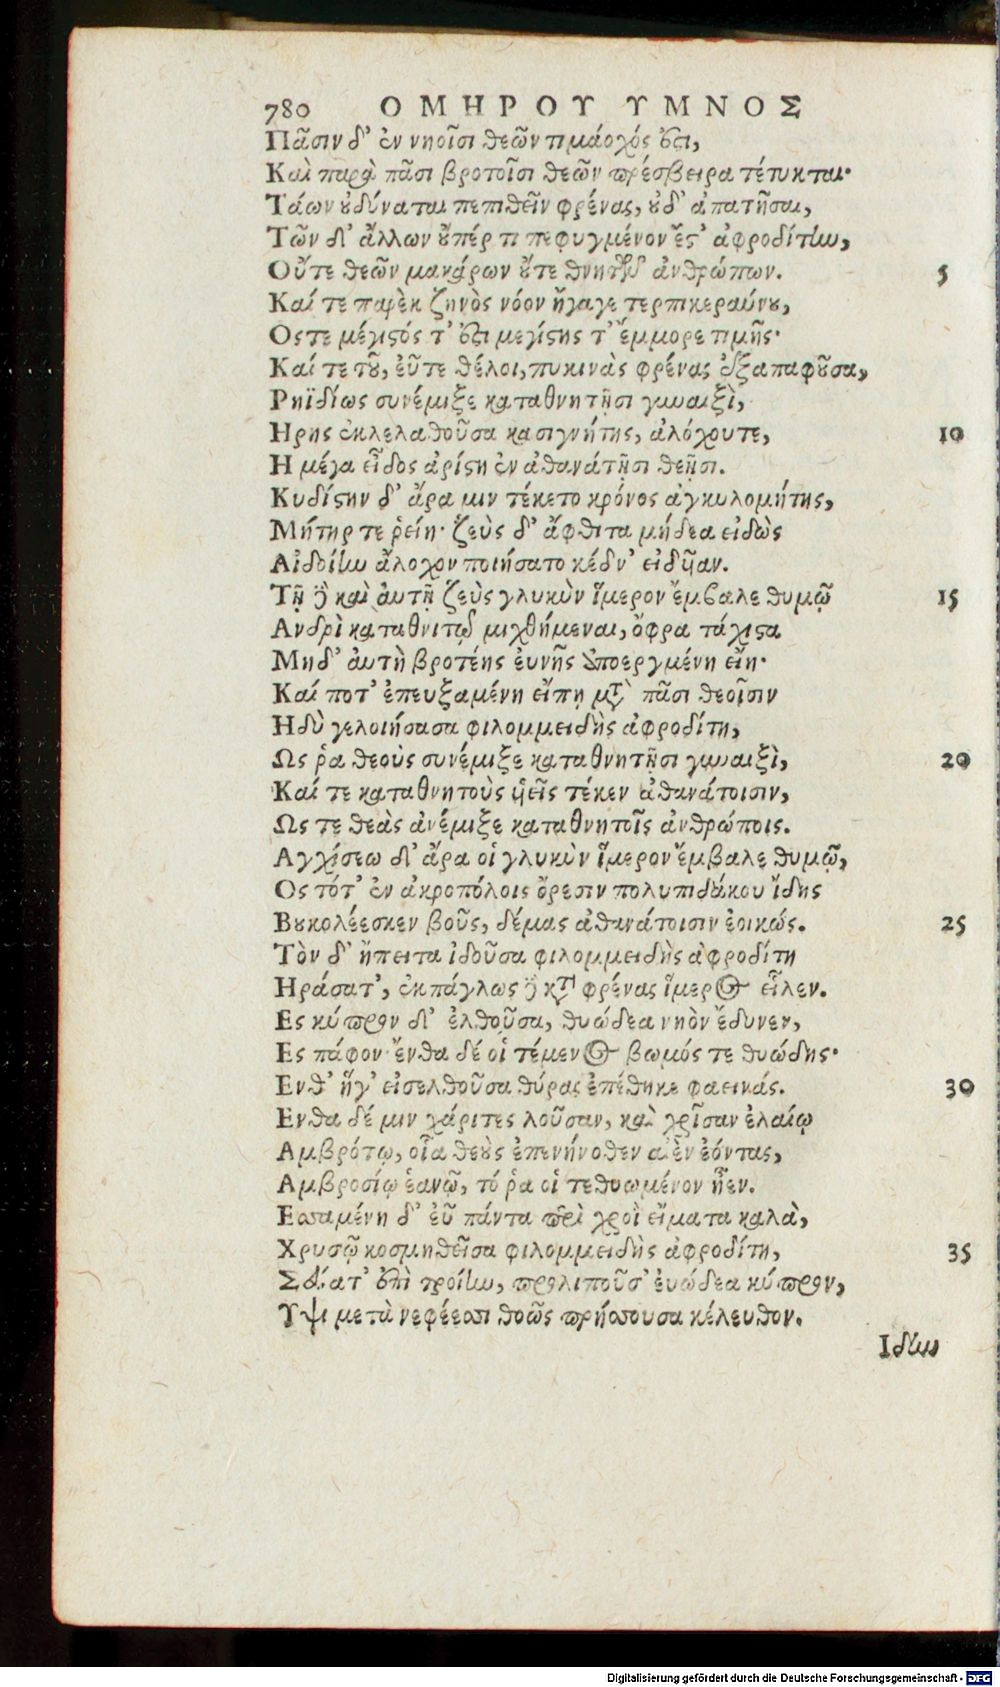 780 ΟΜΗΡΟΥ ΥΜΝΟΣ
Πᾶσιν δ' ἐν νηοῖσι θεῶν τιμάοχός ἐστι,
Καὶ παρὰ πᾶσι βροτοῖσι θεῶν πρέσβειρα τέτυκται·
Τάων οὐ δύναται πεπιθεῖν φρένας, οὐδ' ἀπατῆσαι,
Τῶν δ' ἄλλων οὔπέρ τι πεφυγμένον ἔστ' ἀφροδίτην,
Οὔτε θεῶν μακάρων οὔτε θνητῶν ἀνθρώπων. 5
Καί τε παρὲκ ζηνὸς νόον ἤγαγε τερπικεραύνου,
Οστε μέγιστός τ' ἐστὶ μεγίστης τ' ἔμμορε τιμῆς·
Καί τε τοῦ, εὖτε θέλοι, πυκινὰς φρένας ἐξαπαφοῦσα,
Ρηϊδίως συνέμιξε καταθνητῇσι γυναιξὶ,
Ηρης ἐκλελαθοῦσα κασιγνήτης, ἀλόχου τε, 10
Η μέγα εἶδος ἀρίστη ἐν ἀθανάτῃσι θεῇσι.
Κυδίστην δ' ἄρα μιν τέκετο κρόνος ἀγκυλομήτης,
Μήτηρ τε ῥείη· ζεὺς δ' ἄφθιτα μήδεα εἰδὼς
Αἰδοίην ἄλοχον ποιήσατο κέδν' εἰδυῖαν.
Τῇ δὲ καὶ αὐτῇ ζεὺς γλυκὺν ἵμερον ἔμβαλε θυμῷ 15
Ανδρὶ καταθνιτῷ μιχθήμεναι, ὄφρα τάχιστα
Μηδ' αὐτὴ βροτέης εὐνῆς ἀποεργμένη εἴη·
Καί ποτ' ἐπευξαμένη εἴπῃ μετὰ πᾶσι θεοῖσιν
Ηδὺ γελοιήσασα φιλομμειδὴς ἀφροδίτη,
Ως ῥα θεοὺς συνέμιξε καταθνητῇσι γυναιξὶ, 20
Καί τε καταθνητοὺς υἱεῖς τέκεν ἀθανάτοισιν,
Ως τε θεὰς ἀνέμιξε καταθνητοῖς ἀνθρώποις.
Αγχίσεω δ' ἄρα οἱ γλυκὺν ἵμερον ἔμβαλε θυμῷ,
Ος τότ' ἐν ἀκροπόλοις ὄρεσιν πολυπιδάκου ἴδης
Βουκολέεσκεν βοῦς, δέμας ἀθανάτοισιν ἐοικώς. 25
Τὸν δ' ἤπειτα ἰδοῦσα φιλομμειδὴς ἀφροδίτη
Ηράσατ', ἐκπάγλως δὲ κατὰ φρένας ἵμερος εἷλεν.
Ες κύπρον δ' ἐλθοῦσα, θυώδεα νηὸν ἔδυνεν,
Ες πάφον· ἔνθα δέ οἱ τέμενος βωμός τε θυώδης·
Ενθ' ἥγ' εἰσελθοῦσα θύρας ἐπέθηκε φαεινάς. 30
Ενθα δέ μιν χάριτες λοῦσαν, καὶ χρῖσαν ἐλαίῳ
Αμβρότῳ, οἷα θεοὺς ἐπενήνοθεν αἰὲν ἐόντας,
Αμβροσίῳ ἑανῷ, τό ῥα οἱ τεθυωμένον ἦεν.
Εσσαμένη δ' εὖ πάντα περὶ χροῒ εἵματα καλὰ,
Χρυσῷ κοσμηθεῖσα φιλομμειδὴς ἀφροδίτη, 35
Σεύατ' ἐπὶ τροίην, προλιποῦσ' εὐώδεα κύπρον,
Υψι μετὰ νεφέεσσι θοῶς πρήσσουσα κέλευθον.
Ιδην
Digitalisierung gefördert durch die Deutsche Forschungsgemeinschaft - DFG